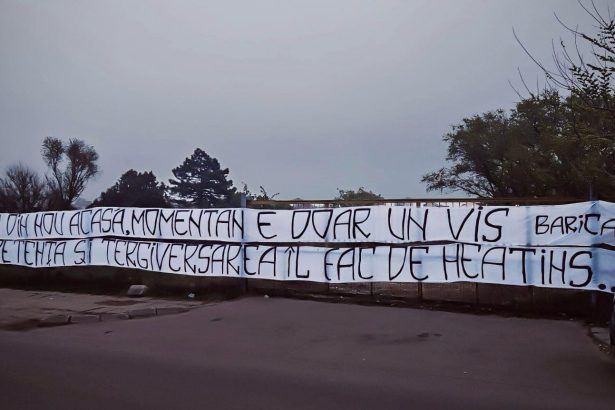 DIN NOU ACASA, MOMENTAN E DOAR UN VIS BARICA
TERGIVERSAREA ÎL FAC DE NEATINS...